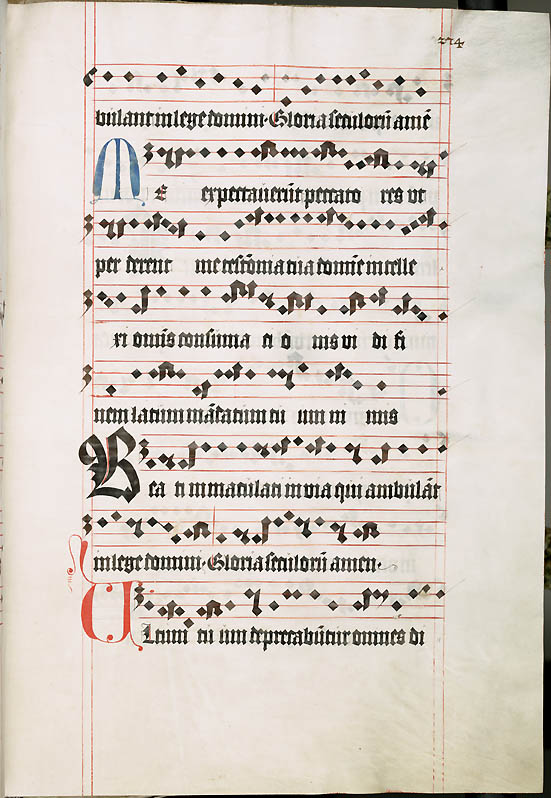 274
bulant in lege domini. Gloria seculorū amē
ME expectauerūt peccato res ut
per derent me testōmia tua domīe intelle
xi omīs consuma ti o nis ui di fi
nem latum mādatum tu um ni mis
Bea ti immaculati in uia qui ambulāt
in lege domini. Gloria seculorū amen.
Ultum tu um deprecabūtur omnes di